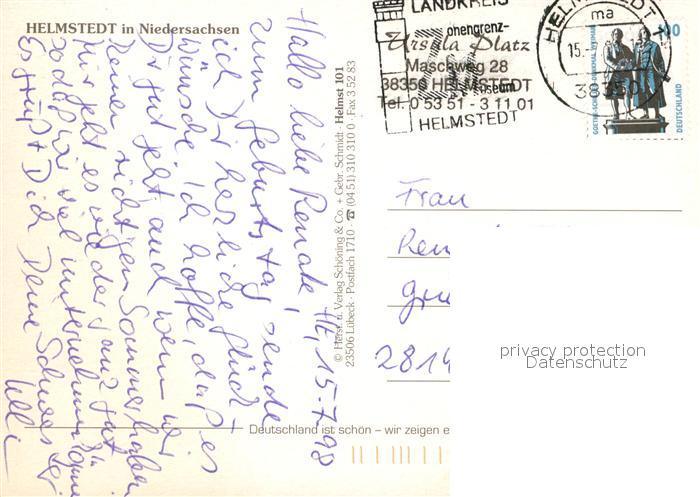 HELMSTEDT in Niedersachsen
Hallo liebe Renate, He, 15.7.98
zum Geburtstag sende
ich Dir herzliche Glück-
wünsche. Ich hoffe, daß es
Dir gut geht auch wenn wir
keinen richtigen Sommer haben.
Mir geht es wieder ganz gut
sodaß wir viel unternehmen
Es grüßt Dich Deine Schwester
Ulli
© Herst. u. Verlag Schöning & Co. + Gebr. Schmidt · Helmst 101
23506 Lübeck · Postfach 1710 · ☎ (04 51) 310 310 0 · Fax 3 52 83
LANDKREIS
onengrenz-
useum
HELMSTEDT
Ursula Platz
Maschweg 28
38350 HELMSTEDT
Tel. 0 53 51 - 3 11 01
HELMSTEDT
ma
15.-7.
38350
100
GOETHE-SCHILLER-DENKMAL WEIMAR
DEUTSCHLAND
Frau
Ren
2814
privacy protection
Datenschutz
Deutschland ist schön – wir zeigen e